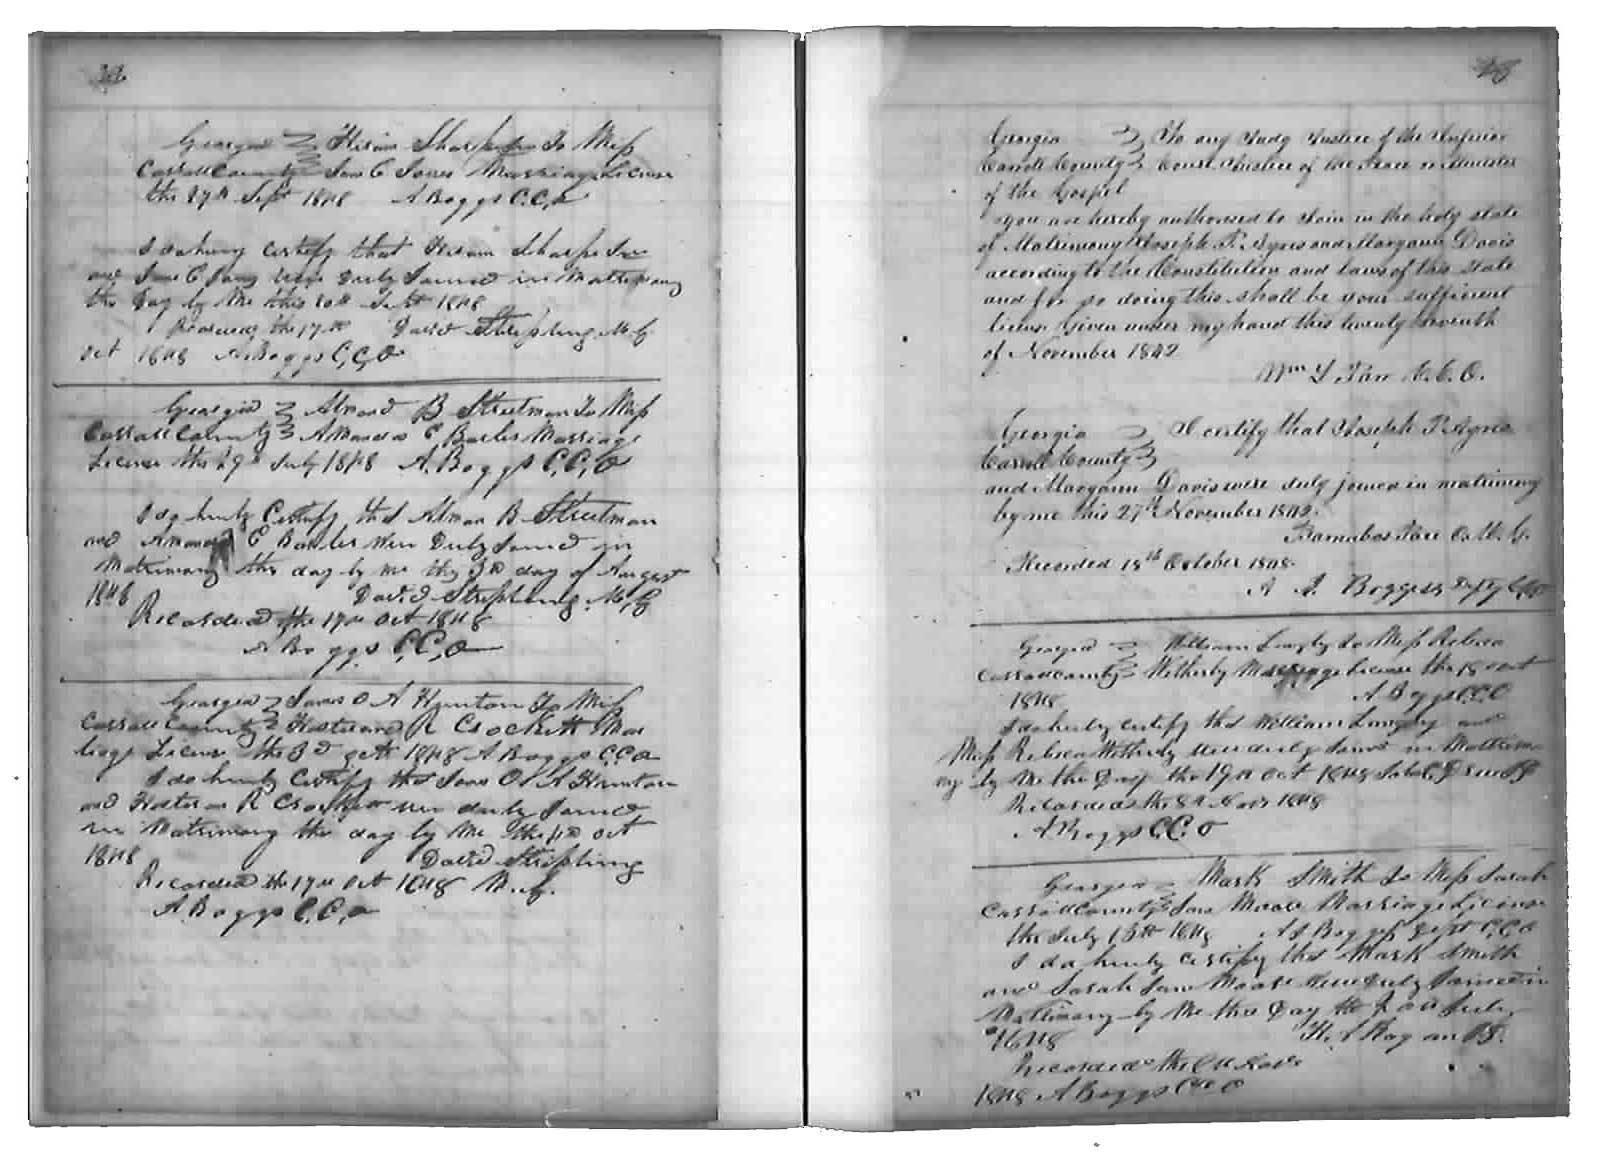 Georgia Hiram Sharp Jr To Miss
Carroll County Jane C Jones Marriage License
the 27th Sept 1848 A Boggs C.C.O
I do hereby certify that Hiram Sharp Jr
and Jane C Jones were Duly Joined in Matrimony
the Day by Me this Sept 1848
Recorded the 17th David Stripling M.G
Oct 1848 A Boggs C.C.O
Georgia Almond B Streetman To Miss
Carroll County Amanda E Marriage
License the 29th July 1848 A. Boggs C,C,O
I do hereby Certify that Alman B Streetman
and Amanda E were Duly Joined in
Matrimony this day by me the 3rd day of August
1848 David Stripling M,G
Recorded the 17th Oct 1848
A Boggs C,C,O
Georgia James O A Hunton To Miss
Carroll County R Crockett Mar
riage License the 3d Oct 1848 A Boggs C.C.O
I do hereby Certify that James O A Hunton
and R Crockett were duly Joined
in Matrimony this day by Me the Oct
1848 David Stripling
Recorded the 17th Oct 1848 M.G.
A. Boggs C,C,O
Georgia To any Judg Justice of the Inferior
Carroll County Court Justice of the Peace or Minister
of the Gospel
you are hereby authorised to Join in the holy state
of Matrimony Joseph T. Ayres and Margann Davis
according to the Constitution and laws of this state
and for so doing this shall be your sufficient
license Given under my hand this twenty seventh
of November 1842
Wm L Parr C.C.O.
Georgia I certify that Joseph T. Ayres
Carroll County
and Margann Davis were duly joined in matrimony
by me this 27th November 1842.
Barnabas Pace O.M.G.
Recorded 18th October 1848
A. J. Boggess Depty C.C.O
Georgia William Langly to Miss Rebeca
Carroll County Wetherby Marriage License the 18 Oct
1848 A Boggs C.C.O
I do hereby certify that William Langly and
Miss Rebeca Wetherby were duly Joined in Matrimo
ny by Me the Day the 19th Oct 1848
Recorded the 8th Nov 1848
A Boggs C.C.O
Georgia Mark Smith to Miss Sarah
Carroll County Jane Moore Marriage License
the July 13th 1848 A J Boggess Dept C.C.O
I do hereby certify that Mark Smith
and Sarah Jane Moore were Duly Joined in
Matrimony by Me this Day the July
1848
Recorded the Nov
1848 A Boggs C.C.O